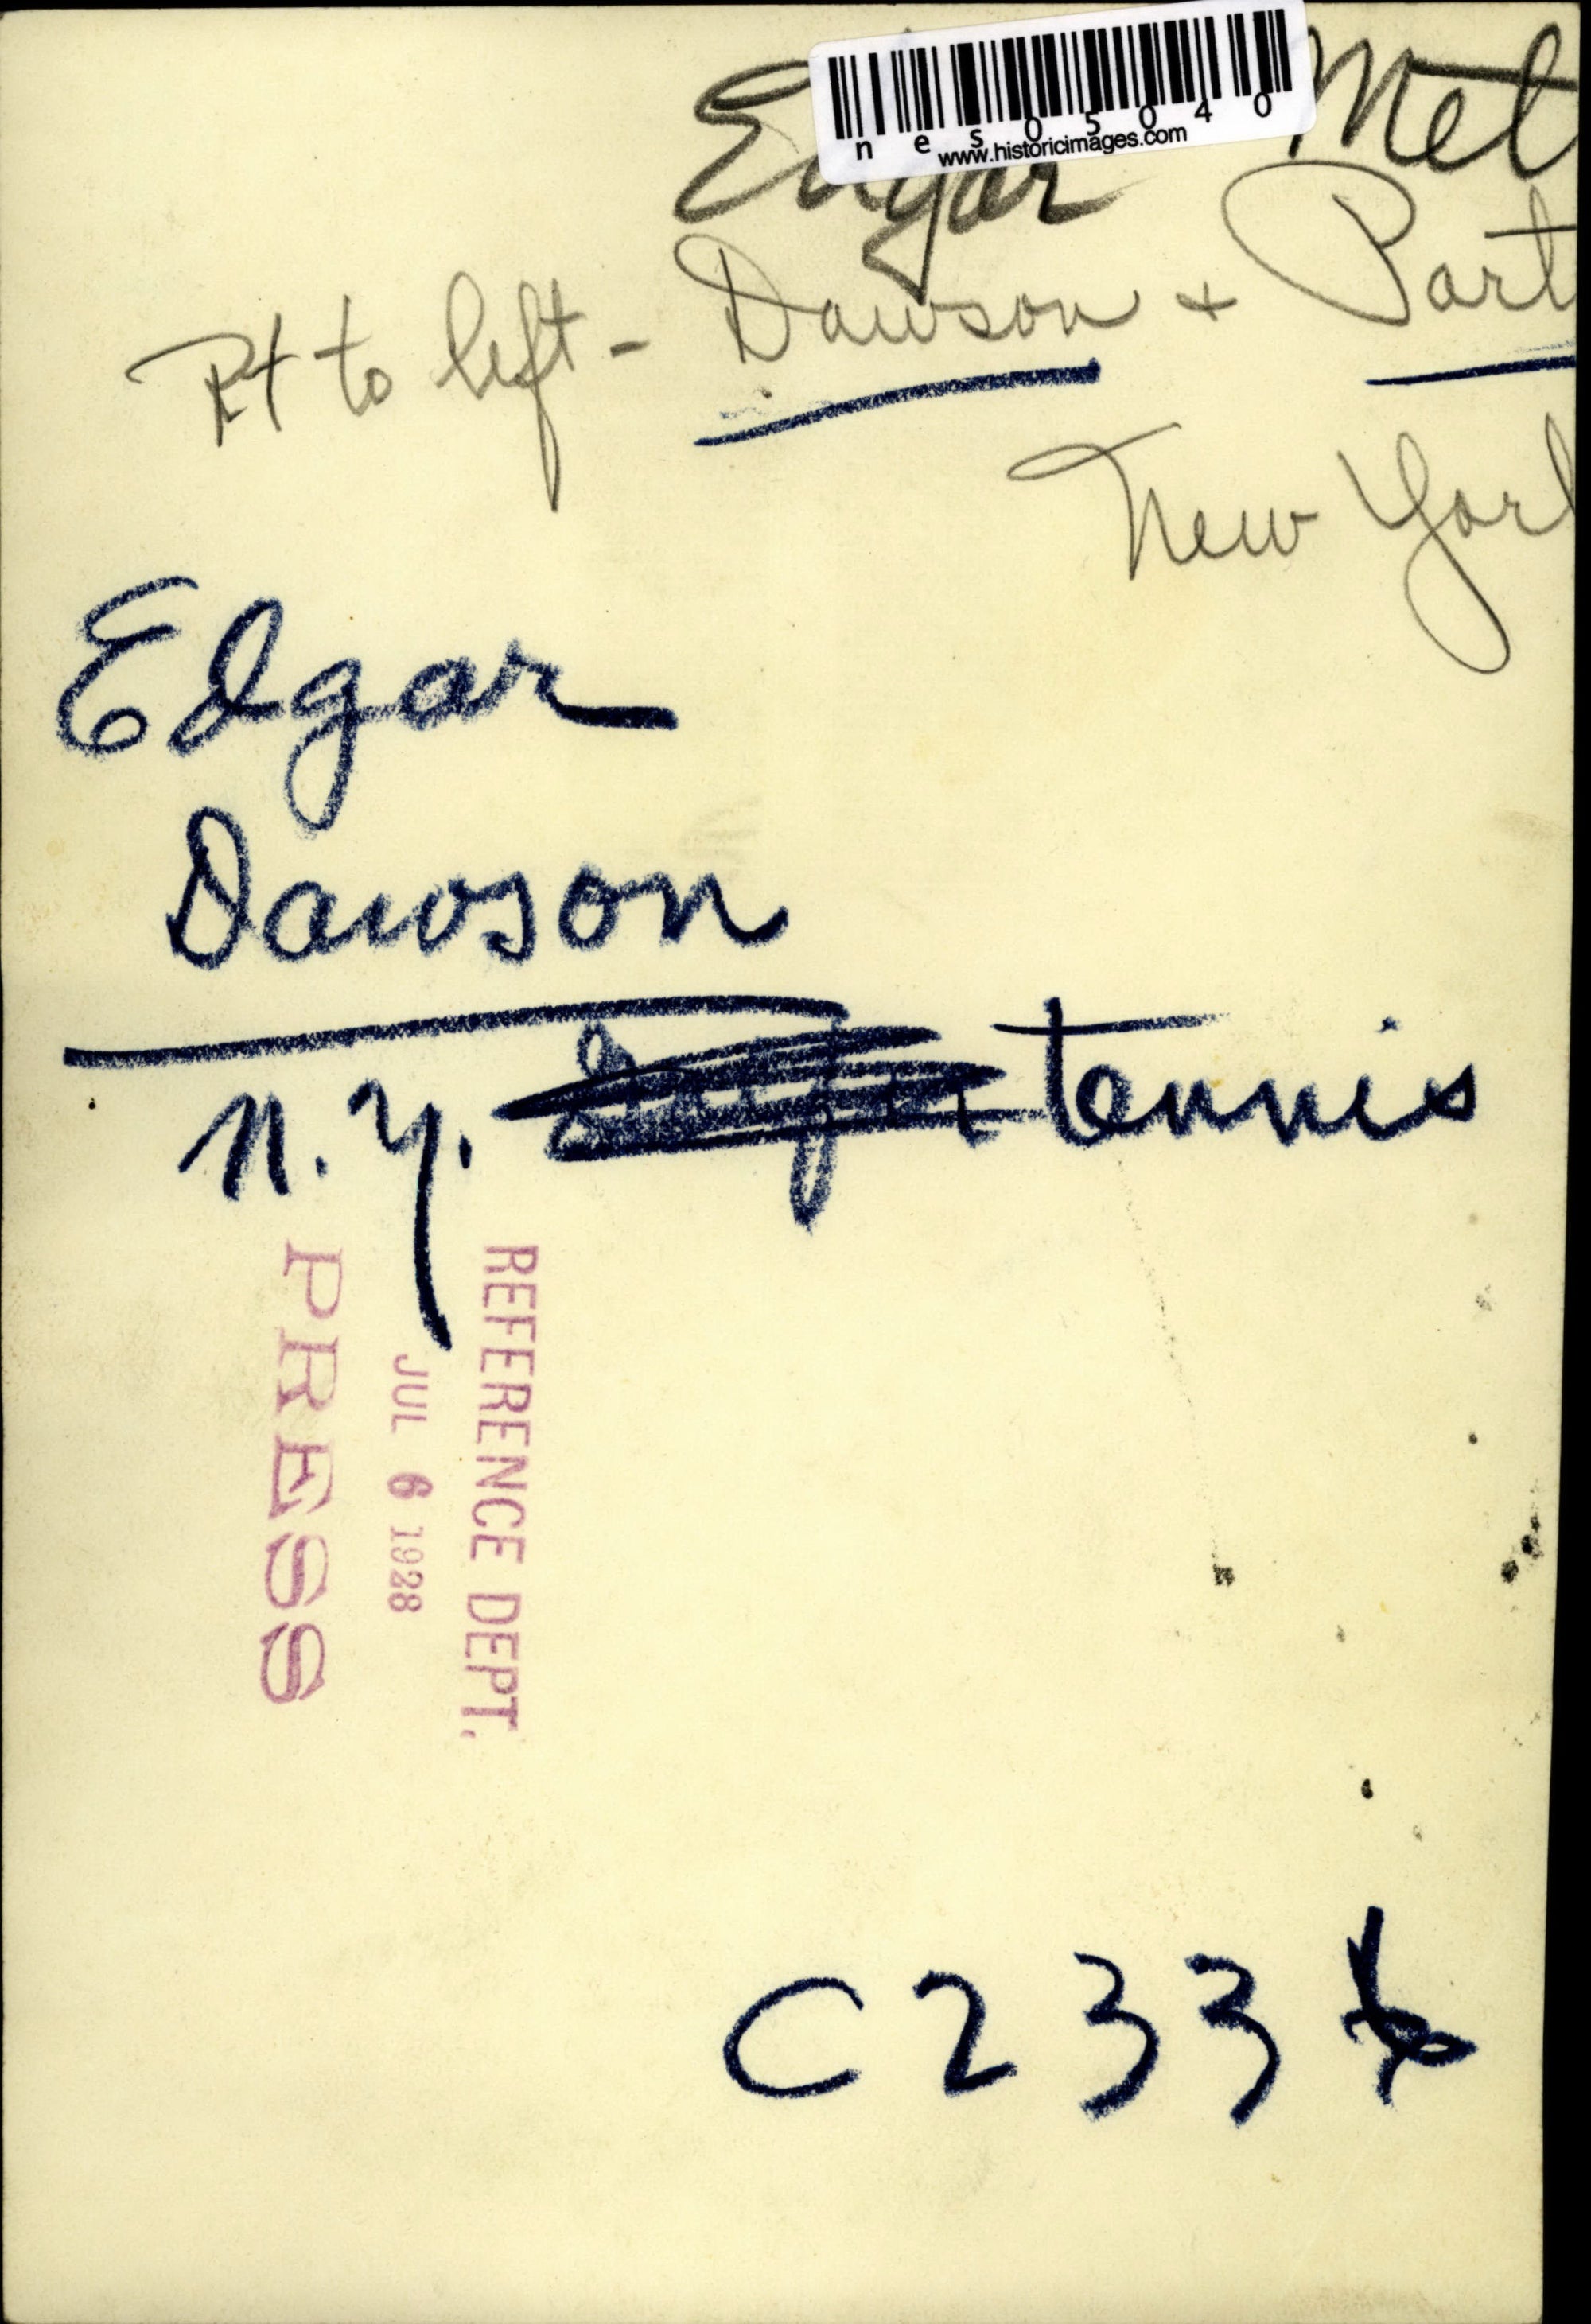 Edgar Met
nes05040
www.historicimages.com
Rt to left - Dawson + Part
New York
Edgar
Dawson
N.Y. tennis
REFERENCE DEPT.
JUL 6 1928
PRESS
C233